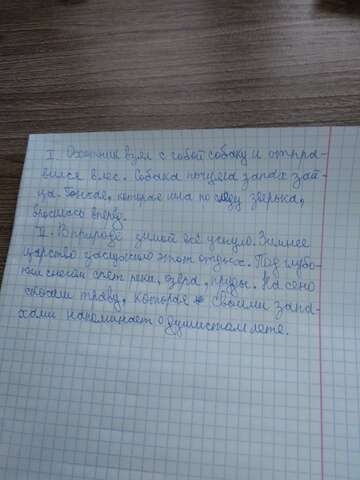 I. Охотник взял с собой собаку и отпра-
вился в лес. Собака почуяла запах зай-
ца. Гончая, которая шла по следу зверька,
бросилась вперёд.
II. В природе зимой всё уснуло. Зимнее
царство заслужило этот отдых. Под глубо-
ким снегом спят река, озёра, пруды. На сено
скосили траву, которая своими запа-
хами напоминает о душистом лете.